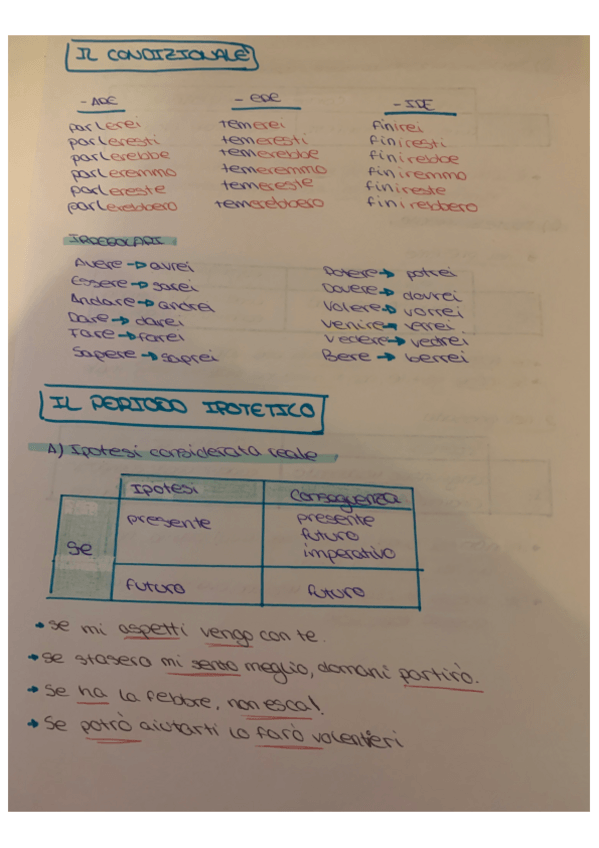 IL CONDIZIONALE
-ARE -ERE -IRE
parlerei temerei finirei
parleresti temeresti finiresti
parlerebbe temerebbe finirebbe
parleremmo temeremmo finiremmo
parlereste temereste finireste
parlerebbero temerebbero finirebbero
IRREGOLARI
Avere → avrei Potere → potrei
Essere → sarei Dovere → dovrei
Andare → andrei Volere → vorrei
Dare → darei Venire → verrei
Fare → farei Vedere → vedrei
Sapere → saprei Bere → berrei
IL PERIODO IPOTETICO
A) Ipotesi considerata reale
Ipotesi Conseguenza
Se presente presente
futuro
imperativo
futuro futuro
• se mi aspetti vengo con te.
→ se stasera mi sento meglio, domani partirò.
→ Se ha la febbre, non esca!
→ Se potrò aiutarti lo farò volentieri